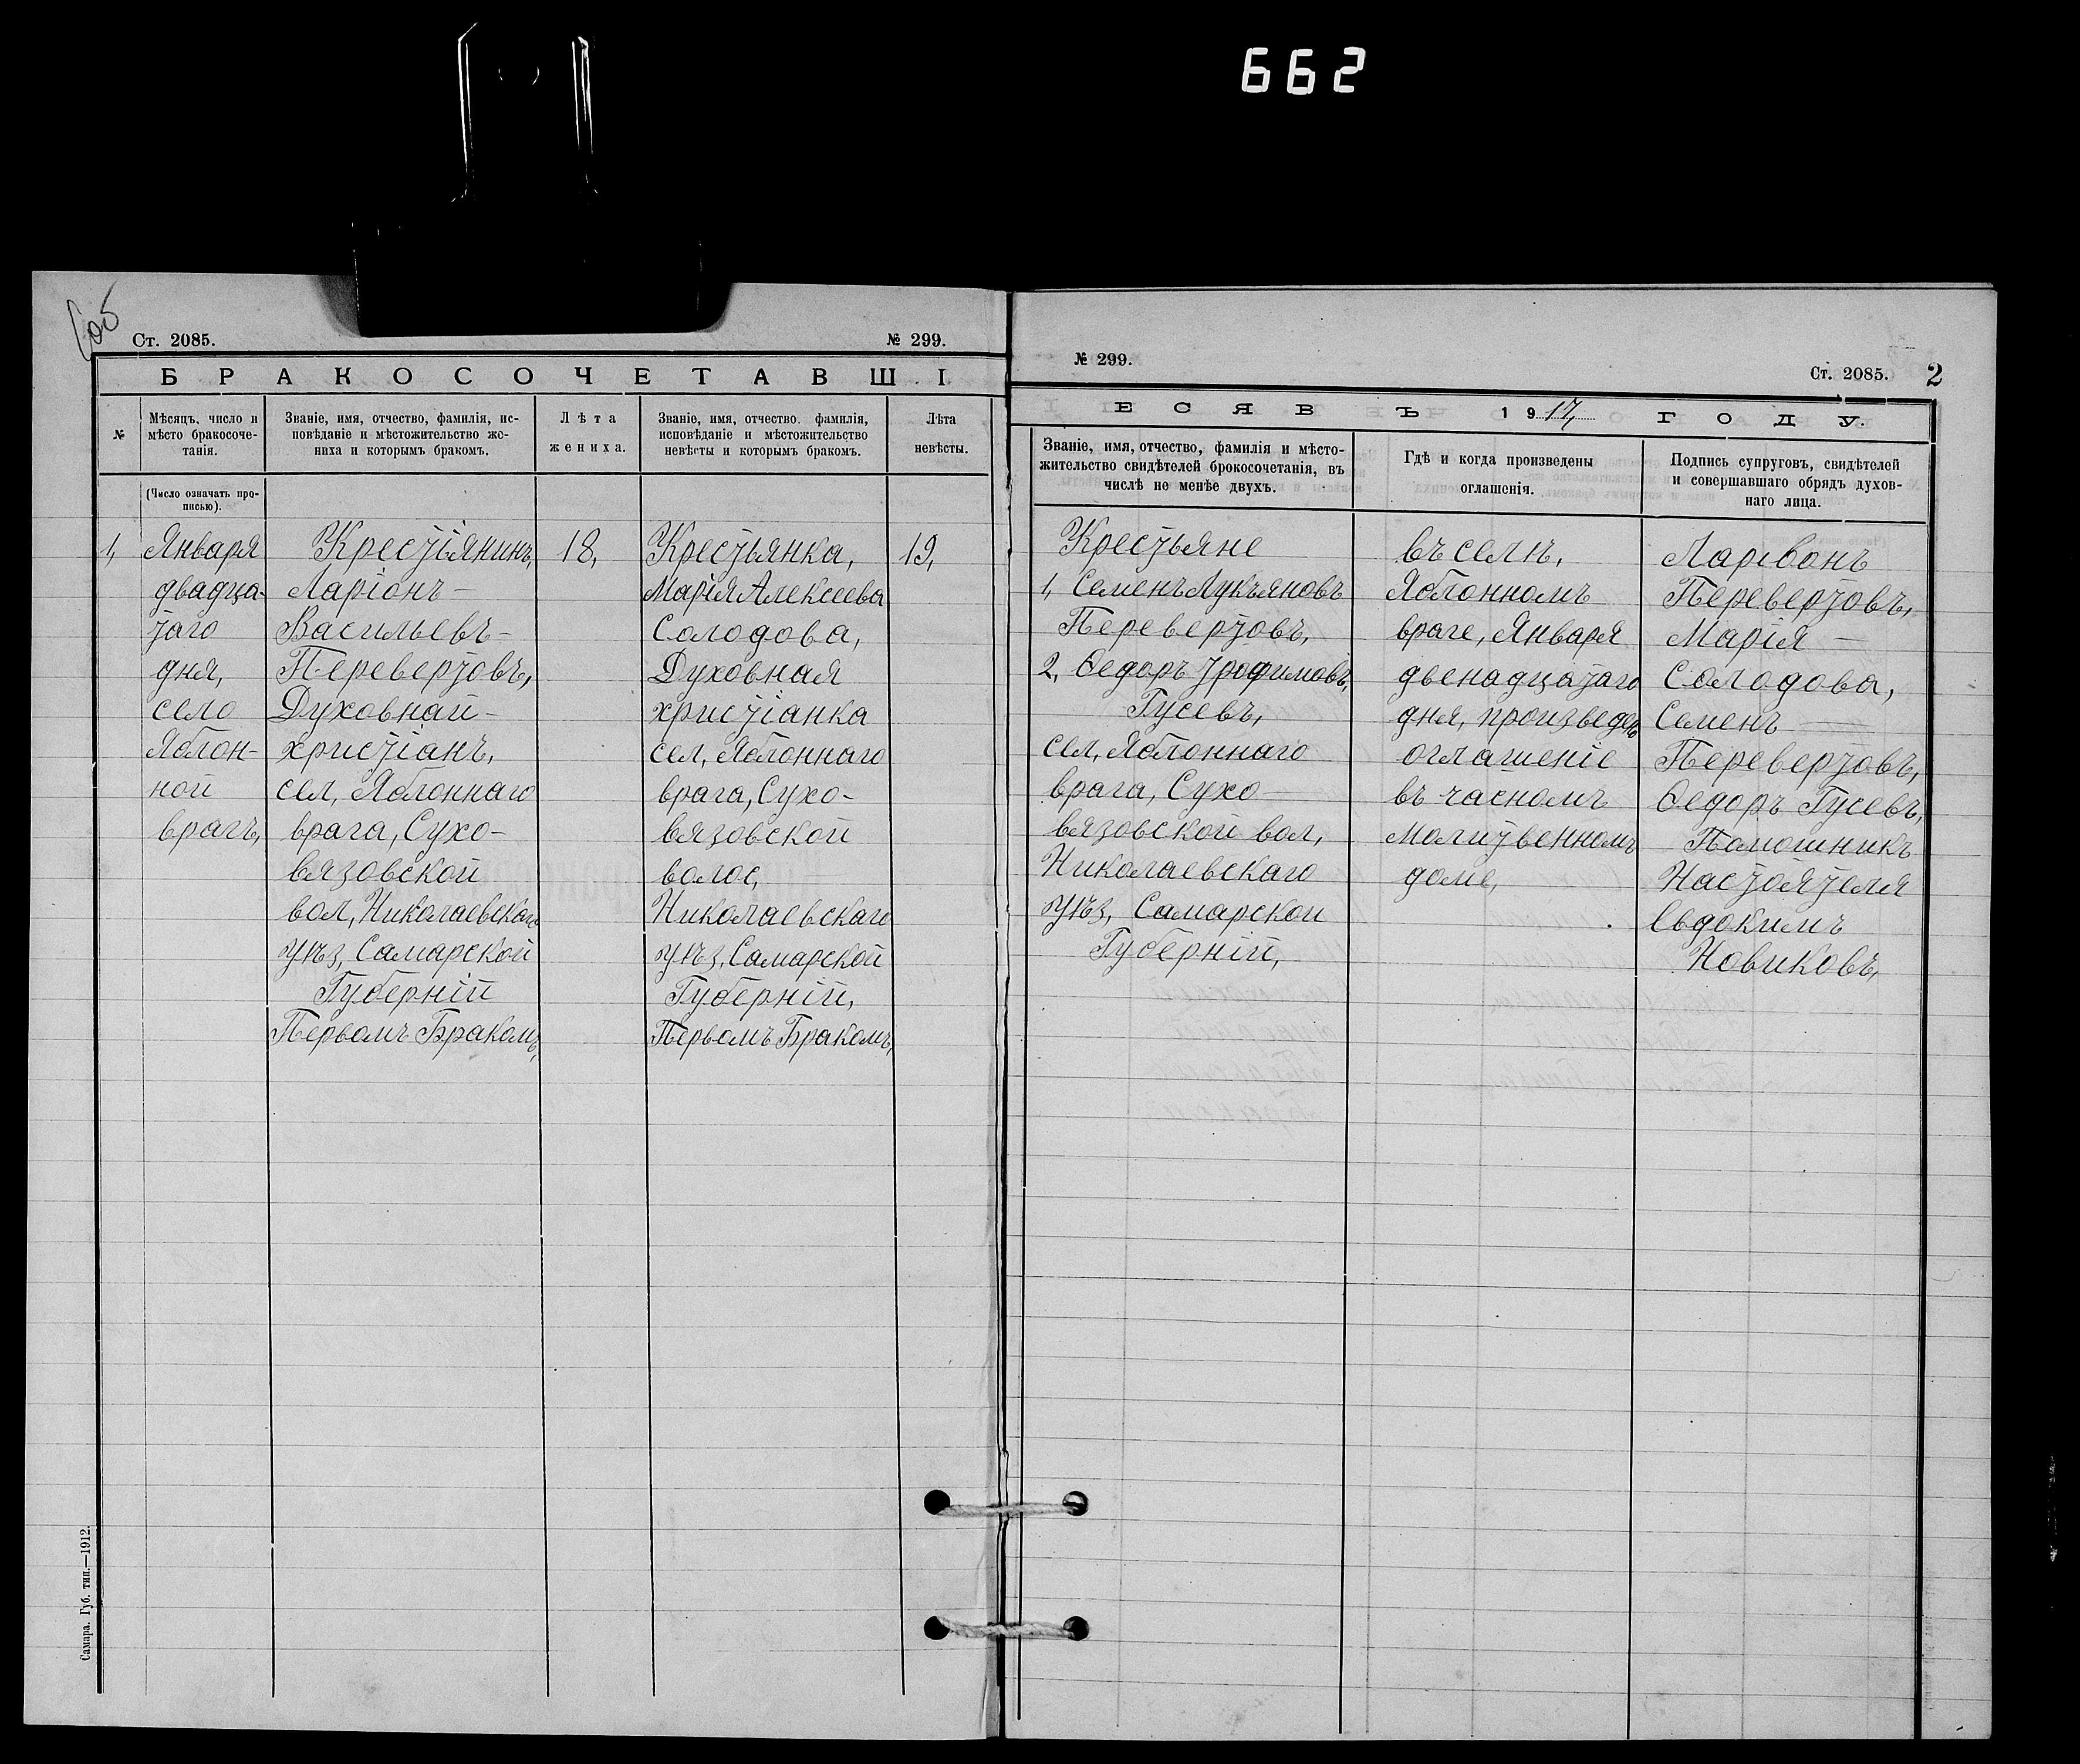 662
Соб
Ст. 2085.
№ 299.
БРАКОСОЧЕТАВШІ
№
Мѣсяцъ, число и
мѣсто бракосоче-
танія.
Званіе, имя, отчество, фамилія, ис-
повѣданіе и мѣстожительство же-
ниха и которымъ бракомъ.
Лѣта
жениха.
Званіе, имя, отчество. фамилія,
исповѣданіе и мѣстожительство
невѣсты и которымъ бракомъ.
Лѣта
невѣсты.
(Число означать про-
писью).
1,
Января
двадца-
таго
дня,
село
Яблон-
ной
врагъ,
Крестіянинъ,
Ларіонъ –
Васильевъ –
Перевертовъ,
Духовнай –
христіанъ,
сел, Яблоннаго
врага, Сухо-
вязовской
вол, Николаевскаго
уѣз, Самарской
Губерніи
Первомъ Бракомъ,
18,
Крестьянка,
Марія Алексеева
Солодова,
Духовная
христіанка
сел, Яблоннаго
врага, Сухо-
вязовской
волос,
Николаевскаго
уѣз, Самарской
Губерніи,
Первомъ Бракомъ,
19,
Самара. Губ. тип.—1912.
№ 299.
Ст. 2085.
2
ІЕСЯ ВЪ 1917, ГОДУ.
Званіе, имя, отчество, фамилія и мѣсто-
жительство свидѣтелей брокосочетанія, въ
числѣ не менѣе двухъ.
Гдѣ и когда произведены
оглашенія.
Подпись супруговъ, свидѣтелей
и совершавшаго обрядъ духов-
наго лица.
Крестьяне
1, Семенъ Лукъяновъ
Перевертовъ,
2, Ѳедоръ Трофимовъ,
Гусевъ,
сел, Яблоннаго
врага, Сухо
вязовской вол,
Николаевскаго
уѣз, Самарской
Губерніи,
въ селѣ,
Яблонномъ
враге, Января
двенадцатаго
дня, произведено
оглашеніе
въ часномъ
молитвенномъ
доме,
Ларівонъ
Перевертовъ,
Марія –
Солодова,
Семенъ
Перевертовъ,
Ѳедоръ Гусевъ,
Помошникъ
Настоятеля
Евдокимъ
Новиковъ,